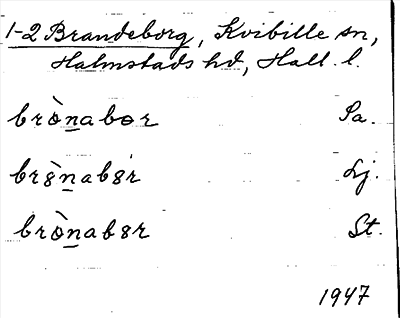 1-2 Brandeborg, Kvibille sn,
Halmstads hd, Hall. l.
brò̱nabor Sa.
br8̀ṉab8r Lj.
brò̱nab8r St.
1947